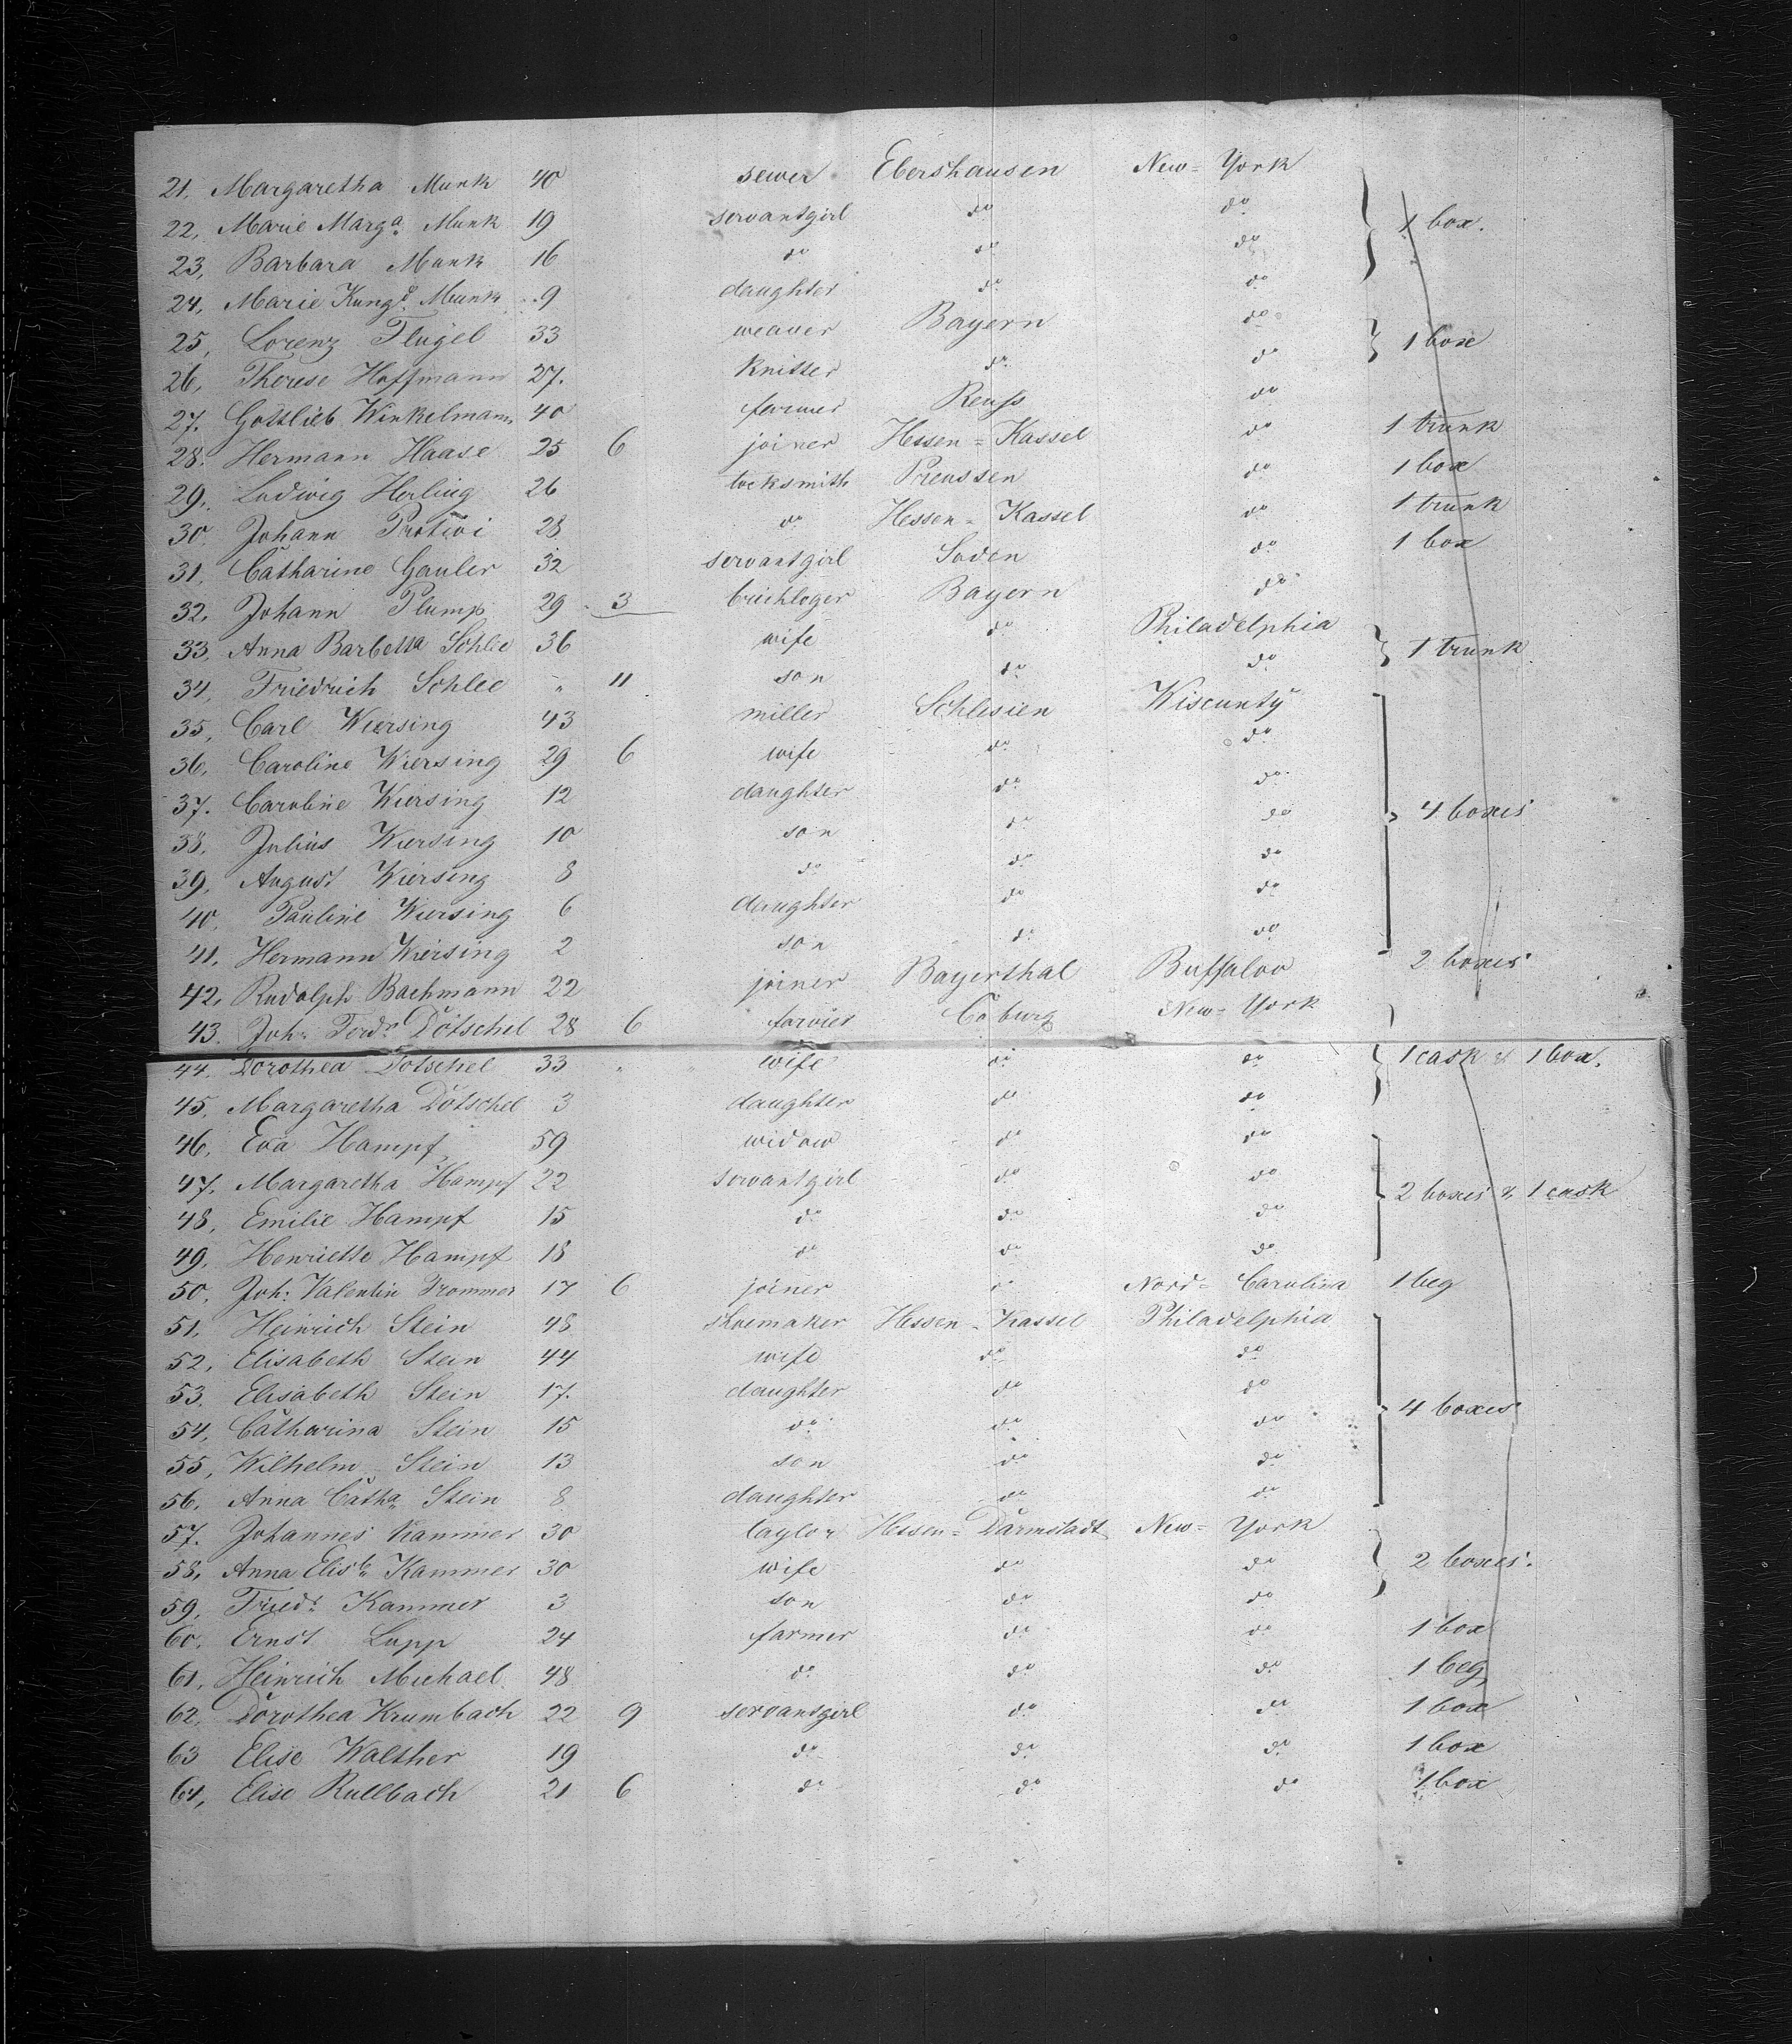 21. Margaretha Munk 40 sewer Ebershausen New-York
22. Marie Marga. Munk 19 servantgirl do do 1 box.
23. Barbara Munk 16 do do do
24. Marie Kungd. Munk 9 daughter do do
25. Lorenz Flügel 33 weaver Bayern do 1 box
26. Therese Hoffmann 27. knitter do do
27. Gottlieb Winkelmann 40 farmer Reuss do
28. Hermann Haase 25 6 joiner Hessen-Kassel do 1 trunk
29. Ludwig Herling 26 locksmith Preussen do 1 box
30. Johann 28 do Hessen-Kassel do 1 trunk
31. Catharine Gauler 32 servantgirl Soden do 1 box
32. Johann Plump 29 3 Bayern do
33. Anna Barbetta Schlee 36 wife do Philadelphia 1 trunk
34. Friedrich Schlee " 11 son do do
35. Carl Wiersing 43 miller Schlesien Wiscunty
36. Caroline Wiersing 29 6 wife do do
37. Caroline Wiersing 12 daughter do do
38. Julius Wiersing 10 son do do 4 boxes
39. August Wiersing 8 do do do
40. Pauline Wiersing 6 daughter do do
41. Hermann Wiersing 2 son do do
42. Rudolph Bachmann 22 joiner Bayerthal Buffaloo 2 boxes
43. Joh. Ferdn. Dötschel 28 6 farvier Coburg New-York
44. Dorothea Dötschel 33 " " wife do do 1 cask & 1 box.
45. Margaretha Dötschel 3 daughter do do
46. Eva Hampf 59 widow do do
47. Margaretha Hampf 22 servantgirl do do 2 boxes & 1 cask
48. Emilie Hampf 15 do do do
49. Henriette Hampf 18 do do do
50. Joh: Valentin Trommer 17 6 joiner do Nord-Carolina 1 beg
51. Heinrich Stein 48 shoemaker Hessen-Kassel Philadelphia
52. Elisabeth Stein 44 wife do do
53. Elisabeth Stein 17. daughter do do
54. Catharina Stein 15 do do do 4 boxes
55. Wilhelm Stein 13 son do do
56. Anna Catha. Stein 8 daughter do do
57. Johannes Kammer 30 taylor Hessen-Darmstadt New-York
58. Anna Elisb. Kammer 30 wife do do 2 boxes.
59. Friedr. Kammer 3 son do do
60. Ernst Lupp 24 farmer do do 1 box
61. Heinrich Michael 48 do do do 1 beg
62. Dorothea Krumbach 22 9 servantgirl do do 1 box
63 Elise Walther 19 do do do 1 box
64, Elise Rullbach 21 6 do do do 1 box